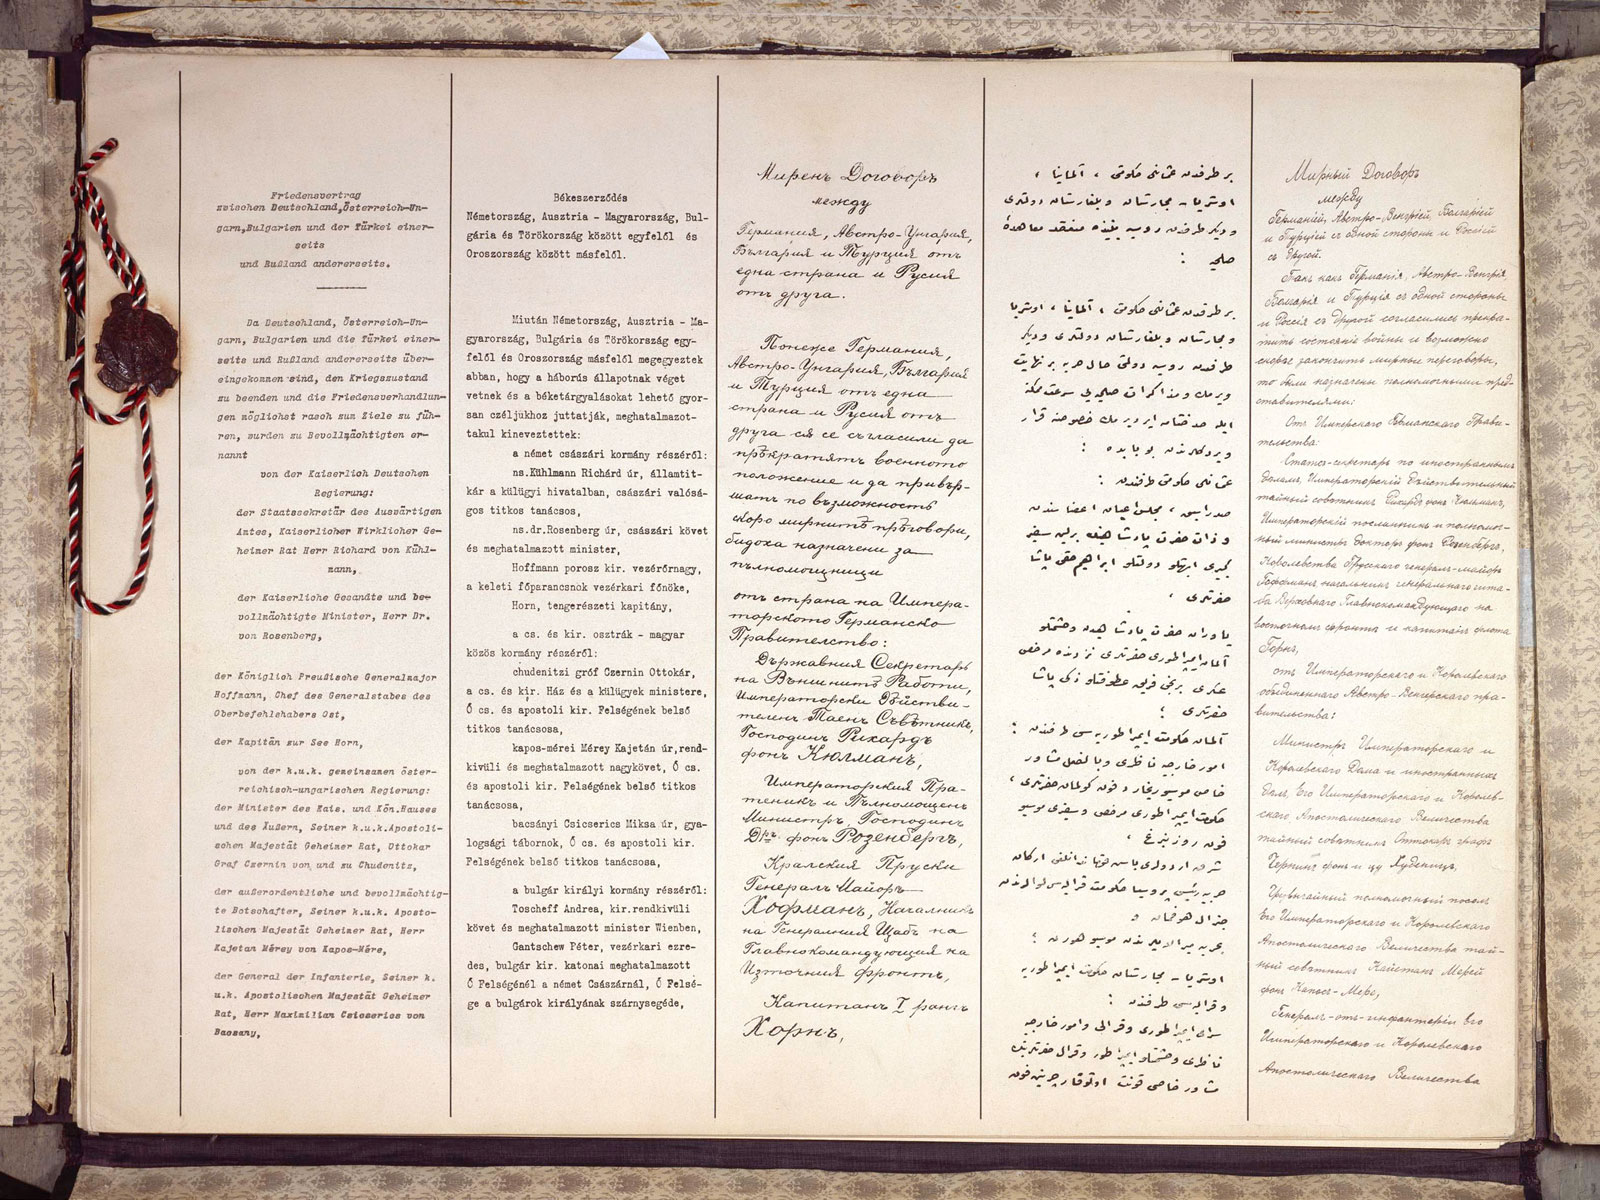 Friedensvertrag
zwischen Deutschland,Österreich-Un-
garn,Bulgarien und der Türkei einer-
seits
und Rußland andererseits.
Da Deutschland, Österreich-Un-
garn, Bulgarien und die Türkei einer-
seits und Rußland andererseits über-
eingekommen sind, den Kriegszustand
zu beenden und die Friedensverhandlun-
gen möglichst rasch zum Ziele zu füh-
ren, wurden zu Bevollmächtigten er-
nannt
von der Kaiserlich Deutschen
Regierung:
der Staatssekretär des Auswärtigen
Amtes, Kaiserlicher Wirklicher Ge-
heimer Rat Herr Richard von Kühl-
mann,
der Kaiserliche Gesandte und be-
vollmächtigte Minister, Herr Dr.
von Rosenberg,
der Königlich Preußische Generalmajor
Hoffmann, Chef des Generalstabes des
Oberbefehlshabers Ost,
der Kapitän zur See Horn,
von der k.u.k. gemeinsamen öster-
reichisch-ungarischen Regierung:
der Minister des Kais. und Kön.Hauses
und des Äußern, Seiner k.u.k.Apostoli-
schen Majestät Geheimer Rat, Ottokar
Graf Czernin von und zu Chudenitz,
der außerordentliche und bevollmächtig-
te Botschafter, Seiner k.u.k. Aposto-
lischen Majestät Geheimer Rat, Herr
Kajetan Mérey von Kapos-Mére,
der General der Infanterie, Seiner k.
u.k. Apostolischen Majestät Geheimer
Rat, Herr Maximilian Csicserics von
Bacsany,
Békeszerződés
Németország, Ausztria - Magyarország, Bul-
gária és Törökország között egyfelől és
Oroszország között másfelől.
Miután Németország, Ausztria - Ma-
gyarország, Bulgária és Törökország egy-
felől és Oroszország másfelől megegyeztek
abban, hogy a háborús állapotnak véget
vetnek és a béketárgyalásokat lehető gyor-
san céljukhoz juttatják, meghatalmazot-
takul kineveztettek:
a német császári kormány részéről:
ns.Kühlmann Richárd úr, államtit-
kár a külügyi hivatalban, császári valósá-
gos titkos tanácsos,
ns.dr.Rosenberg úr, császári követ
és meghatalmazott minister,
Hoffmann porosz kir. vezérőrnagy,
a keleti főparancsnok vezérkari főnöke,
Horn, tengerészeti kapitány,
a cs. és kir. osztrák - magyar
közös kormány részéről:
chudenitzi gróf Czernin Ottokár,
a cs. és kir. Ház és a külügyek ministere,
Ő cs. és apostoli kir. Felségének belső
titkos tanácsosa,
kapos-mérei Mérey Kajetán úr,rend-
kivüli és meghatalmazott nagykövet, Ő cs.
és apostoli kir. Felségének belső titkos
tanácsosa,
bacsányi Csicserics Miksa úr, gya-
logsági tábornok, Ő cs. és apostoli kir.
Felségének belső titkos tanácsosa,
a bulgár királyi kormány részéről:
Toscheff Andrea, kir.rendkivüli
követ és meghatalmazott minister Wienben,
Gantschew Péter, vezérkari ezre-
des, bulgár kir. katonai meghatalmazott
Ő Felségénél a német Császárnál, Ő Felsé-
ge a bulgárok királyának szárnysegéde,
Миренъ Договоръ
между
Германия, Австро-Унгария,
България и Турция отъ
една страна и Русия
отъ друга.
Понеже Германия,
Австро-Унгария, България
и Турция отъ една
страна и Русия отъ
друга ся се съгласили да
прѣкратятъ военното
положение и да привър-
шатъ по възможность
скоро мирнитѣ прѣговори,
бидоха назначени за
пълномощници
отъ страна на Импера-
торското Германско
Правителство:
Държавния Секретарь
на Външнитѣ Работи,
Императорски Дѣйстви-
теленъ Таенъ Съвѣтникъ,
Господинъ Рихардъ
фонъ Кюлманъ,
Императорския Пра-
теникъ и Пълномощенъ
Министръ, Господинъ
Дръ фонъ Розенбергъ,
Кралския Пруски
Генералъ Майоръ
Хофманъ, Началникъ
на Генералния Щабъ на
Главнокомандующия на
Източния фронтъ,
Капитанъ I рангъ
Хорнъ,
بر طرفدن عثمانلی حکومتی ، آلمانیا ،
اوستریا - مجارستان و بلغارستان دولتلری
و دیگر طرفدن روسیه بیننده منعقد معاهدهٔ
صلحیه :
بر طرفدن عثمانلی حکومتی ، آلمانیا ، اوستریا
و مجارستان و بلغارستان دولتلری و دیگر
طرفدن روسیه دولتی حال حربه بر نهایت
ویرمك و مذاکرات صلحیه‌یی سرعت ممکنه
عثمانلی حکومتی طرفندن :
Мирный Договоръ
между
Германіей, Австро-Венгріей, Болгаріей
и Турціей съ одной стороны и Россіей
съ другой.
Такъ какъ Германія, Австро-Венгрія,
Болгарія и Турція съ одной стороны
и Россія съ другой согласились прекра-
тить состояніе войны и возможно
скорѣе закончить мирные переговоры,
то были назначены полномочными пред-
ставителями:
Отъ Императорскаго Германскаго Прави-
тельства:
Статсъ-секретарь по иностраннымъ
дѣламъ, Императорскій Дѣйствительный
тайный совѣтникъ Рихардъ фонъ Кюльманъ,
Императорскій посланникъ и полномоч-
ный министръ докторъ фонъ Розенбергъ,
Королевства Прусскаго генералъ-майоръ
Гоффманъ, начальникъ генеральнаго шта-
ба Верховнаго Главнокомандующаго на
восточномъ фронтѣ и капитанъ флота
Горнъ,
отъ Императорскаго и Королевскаго
объединеннаго Австро-Венгерскаго пра-
вительства:
Министръ Императорскаго и
Королевскаго Дома и иностранныхъ
дѣлъ, Его Императорскаго и Королев-
скаго Апостолическаго Величества
тайный совѣтникъ Оттокаръ графъ
Чернинъ фонъ и цу Худеницъ,
Чрезвычайный полномочный посолъ
Его Императорскаго и Королевскаго
Апостолическаго Величества тай-
ный совѣтникъ Кайетанъ Мерей
фонъ Капосъ-Мере,
Генералъ-отъ-инфантеріи Его
Императорскаго и Королевскаго
Апостолическаго Величества